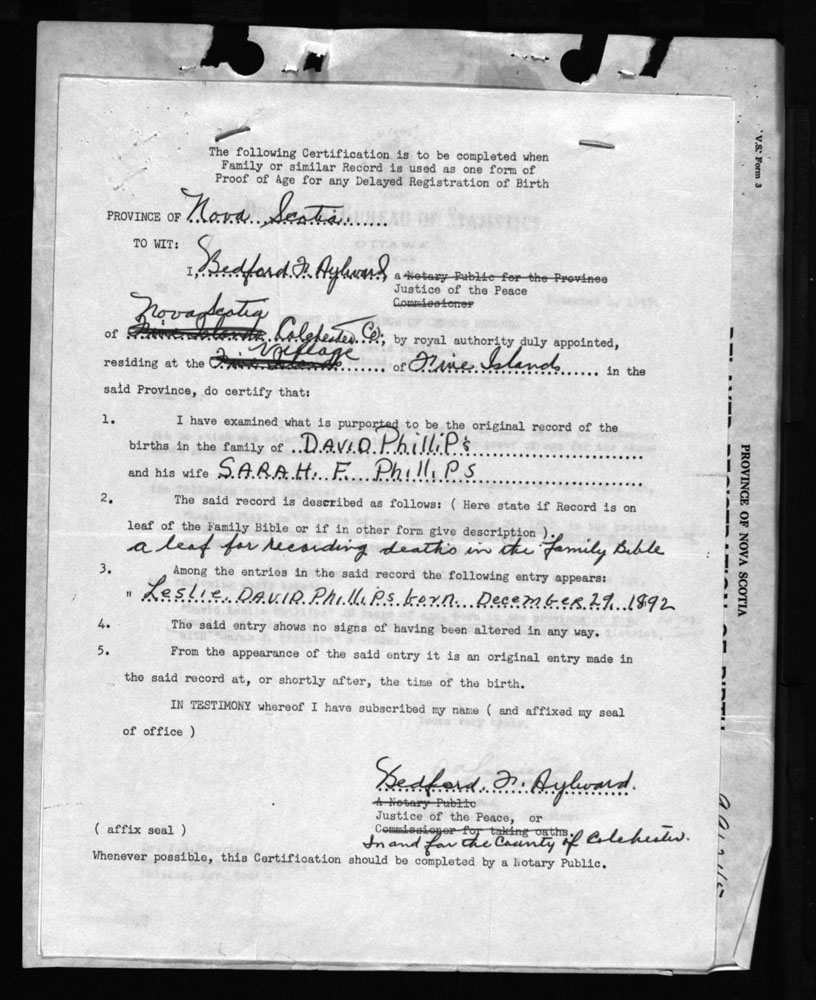 The following Certification is to be completed when
Family or similar Record is used as one form of
Proof of Age for any Delayed Registration of Birth
PROVINCE OF Nova Scotia
TO WIT:
I, Bedford F. Aylward, a Notary Public for the Province
Justice of the Peace
Commissioner
Nova Scotia
of Five Islands Colchester Co., by royal authority duly appointed,
Village
residing at the Five Islands of Five Islands in the
said Province, do certify that:
1. I have examined what is purported to be the original record of the
births in the family of DAVID PhilliPs
and his wife SARAH F. PhilliPs
2. The said record is described as follows: ( Here state if Record is on
leaf of the Family Bible or if in other form give description ).
a leaf for recording deaths in the family Bible
3. Among the entries in the said record the following entry appears:
" Leslie DAVID PhilliPs born December 29, 1892
4. The said entry shows no signs of having been altered in any way.
5. From the appearance of the said entry it is an original entry made in
the said record at, or shortly after, the time of the birth.
IN TESTIMONY whereof I have subscribed my name ( and affixed my seal
of office )
Bedford F. Aylward.
A Notary Public
Justice of the Peace, or
( affix seal ) Commissioner for taking oaths.
In and for the County of Colchester.
Whenever possible, this Certification should be completed by a Notary Public.
V.S. Form 3
PROVINCE OF NOVA SCOTIA